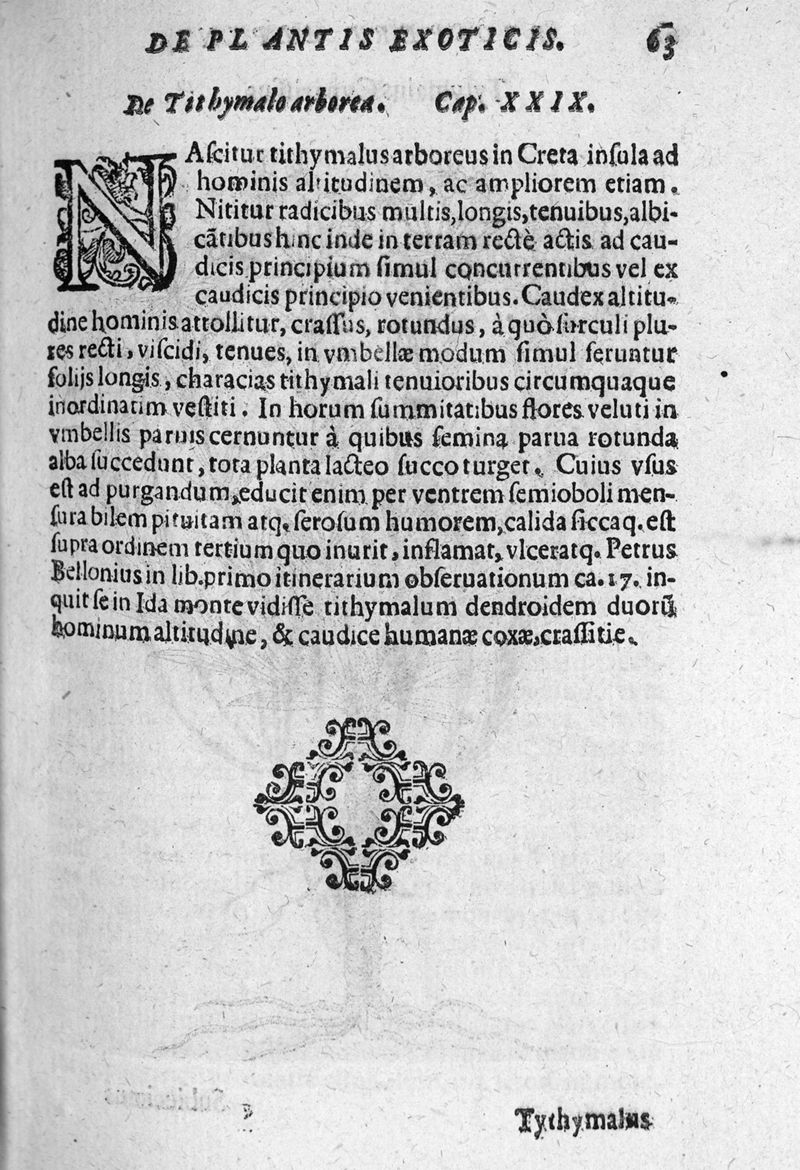 DE PLANTIS EXOTICIS. 63
De Tithymalo arborea. Cap. XXIX.
NAſcitur tithymalus arboreus in Creta inſula ad
hominis altitudinem, ac ampliorem etiam.
Nititur radicibus multis, longis, tenuibus, albi-
cãtibus hinc inde in terram rectè actis ad cau-
dicis principium ſimul concurrentibus vel ex
caudicis principio venientibus. Caudex altitu-
dine hominis attollitur, craſſus, rotundus, à quò ſurculi plu-
res recti, viſcidi, tenues, in vmbellæ modum ſimul feruntur
folijs longis, characias tithymali tenuioribus circumquaque
inordinatim veſtiti. In horum ſummitatibus flores veluti in
vmbellis paruis cernuntur à quibus ſemina parua rotunda
alba ſuccedunt, tota planta lacteo ſucco turget. Cuius vſus
eſt ad purgandum, educit enim per ventrem ſemioboli men-
ſura bilem pituitam atq. ſeroſum humorem, calida ſiccaq. eſt
ſupra ordinem tertium quo inurit, inflamat, vlceratq. Petrus
Bellonius in lib. primo itinerarium obſeruationum ca. 17. in-
quit ſe in Ida monte vidiſſe tithymalum dendroidem duorũ
hominum altitudine, & caudice humanæ coxæ, craſſitie.
Tythymalus